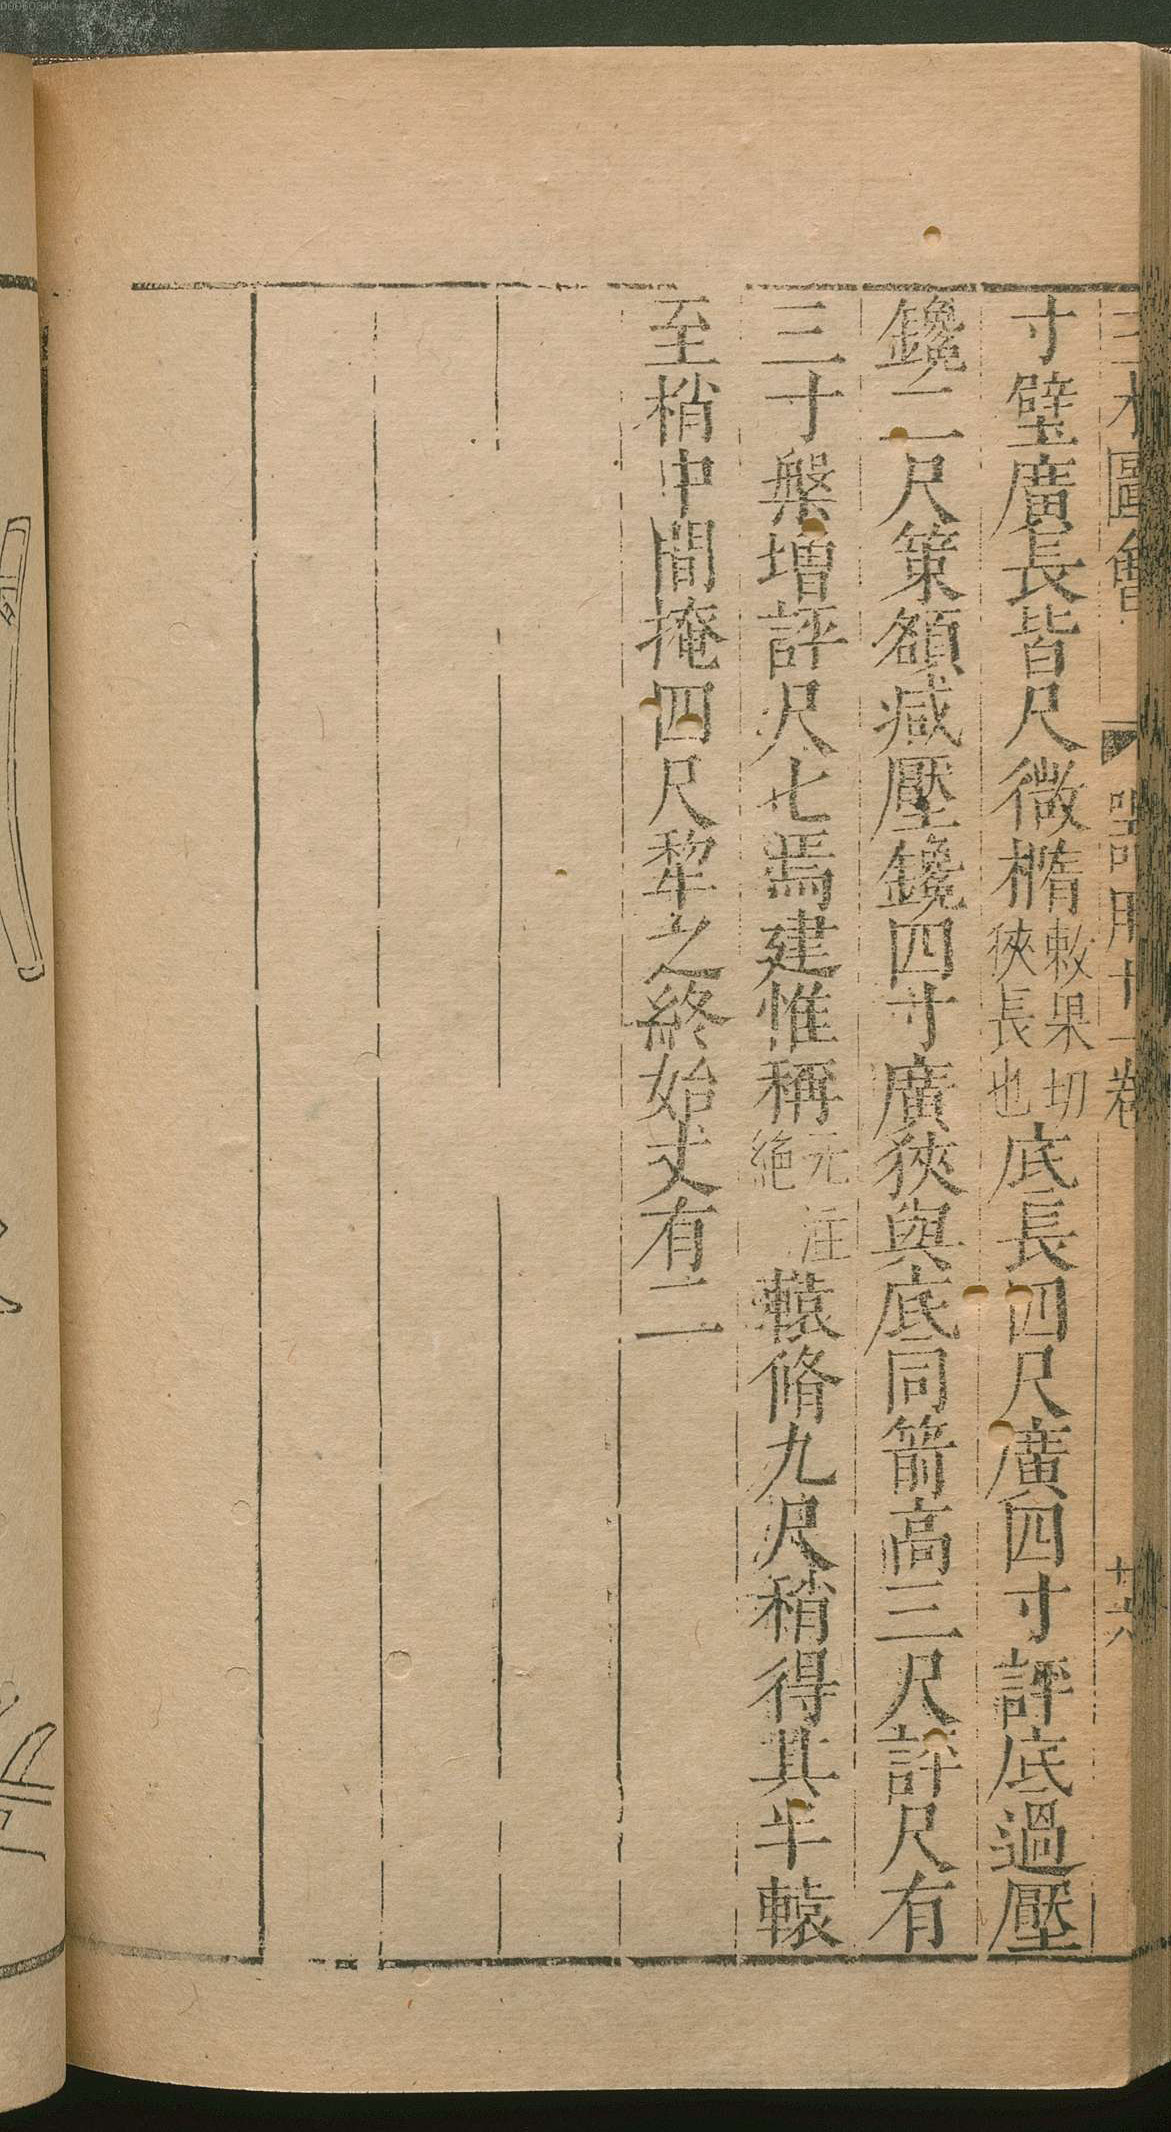 三才圖會 器用十一卷 廿六
寸壁廣長皆尺微橢敕果切狹長也底長四尺廣四寸評底過壓
鑱二尺策額減壓鑱四寸廣狹與底同箭高三尺評尺有
三寸槃增評尺七焉建惟稱元注絕轅脩九尺稍得其半轅
至梢中間掩四尺犂之終始丈有二